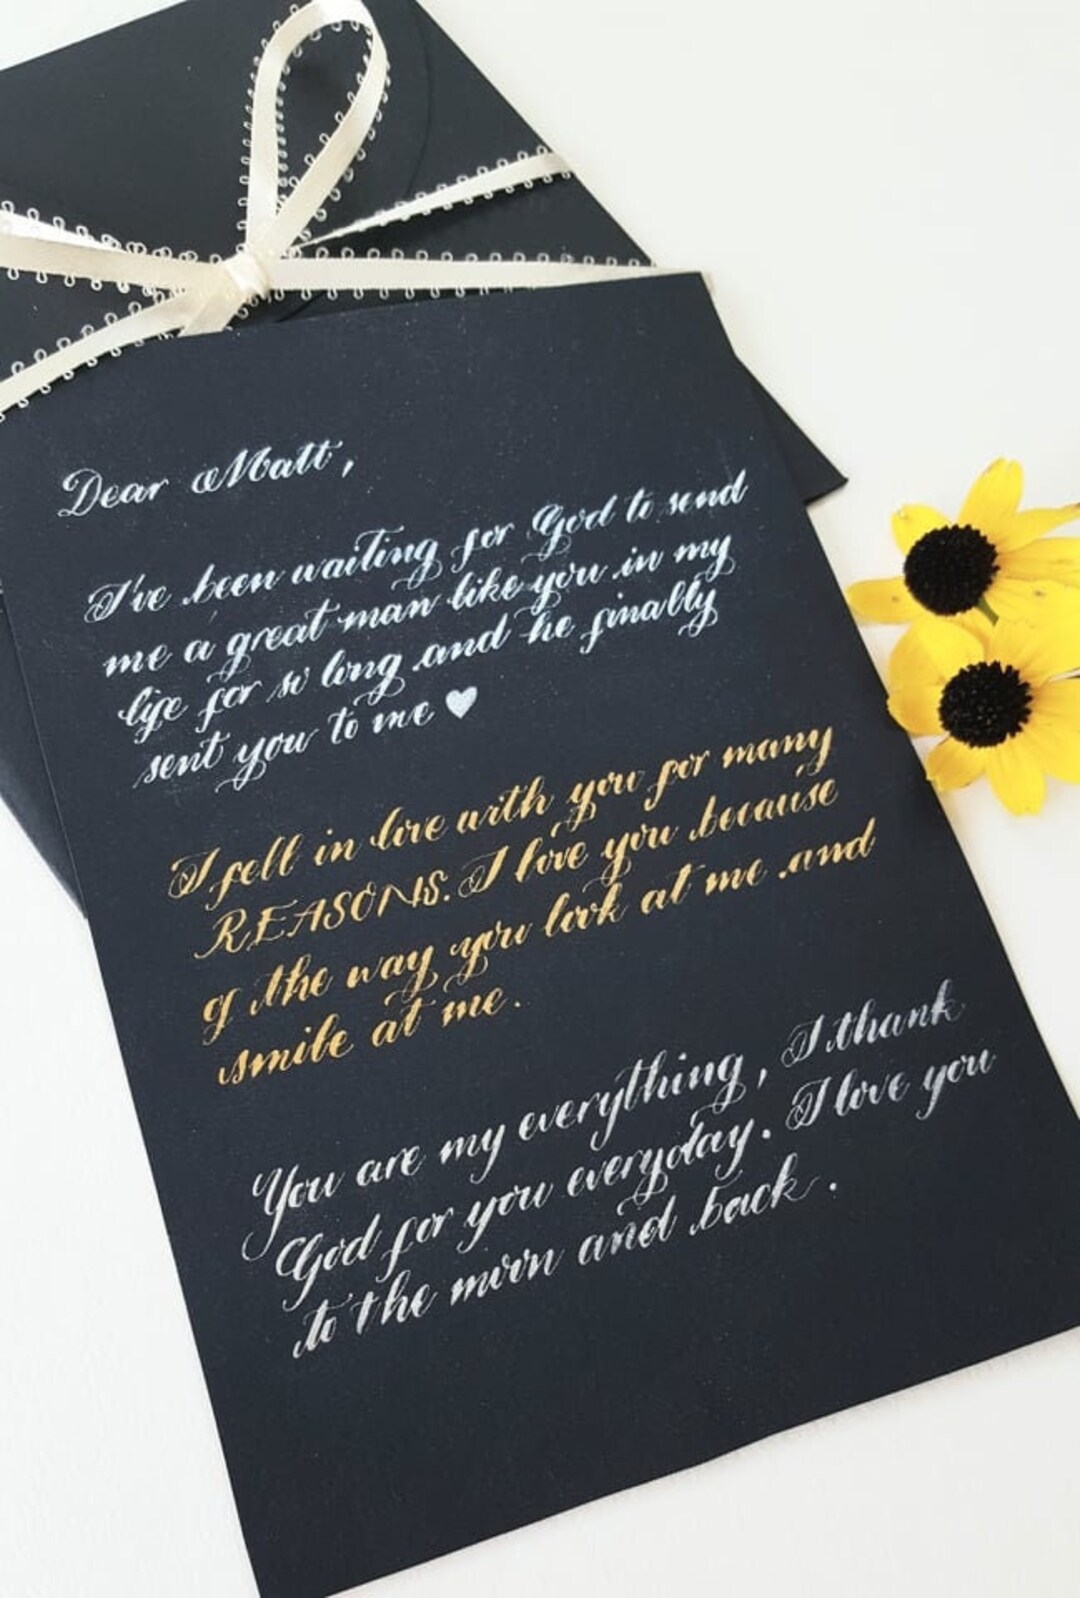 Dear Matt,
I've been waiting for God to send
me a great man like you in my
life for so long and he finally
sent you to me ♥
I fell in love with you for many
REASONS. I love you because
of the way you look at me and
smile at me.
You are my everything, I thank
God for you everyday. I love you
to the moon and back.